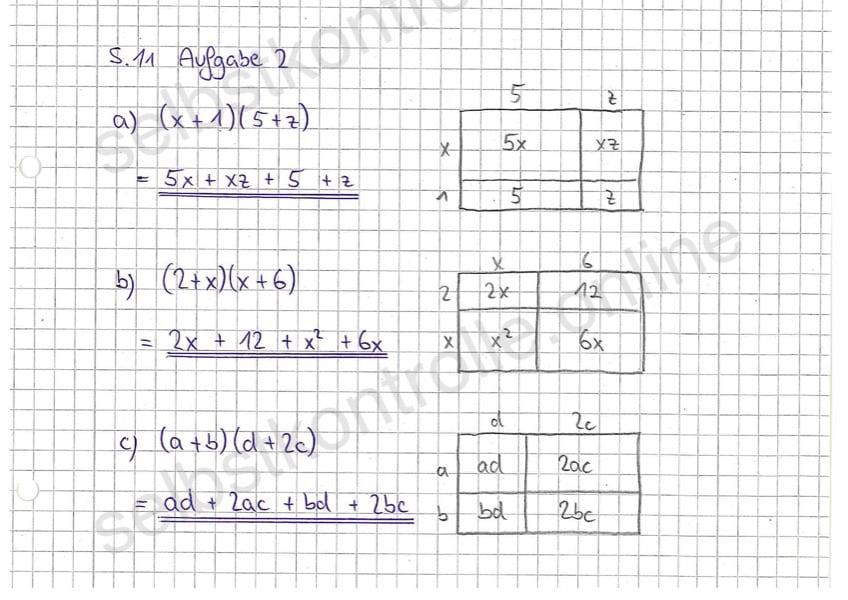 S. 11 Aufgabe 2
a) (x + 1)(5 + z)
= 5x + xz + 5 + z
5 z
x 5x xz
1 5 z
b) (2+x)(x+6)
= 2x + 12 + x² + 6x
x 6
2 2x 12
x x² 6x
c) (a+b)(d+2c)
= ad + 2ac + bd + 2bc
d 2c
a ad 2ac
b bd 2bc
selbstkontrolle.online
selbstkontro